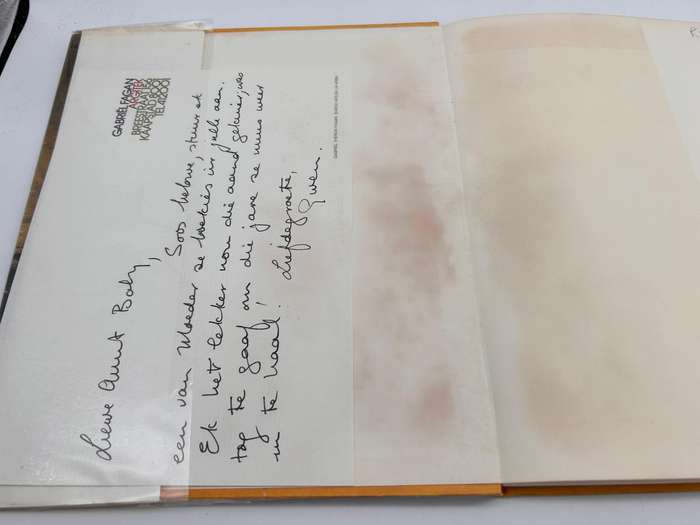 GABRIËL FAGAN
ARGITEK
BREESTRAAT
KAAPSTAD 8001
Liewe Aunt Baby,
Soos belowe, stuur ek
een van Moeder se boekies vir julle aan.
Ek het lekker nou die aand gekuier, was
tog te gaaf om die jare se nuus weer
in te haal! Liefdegroete,
Gwen.